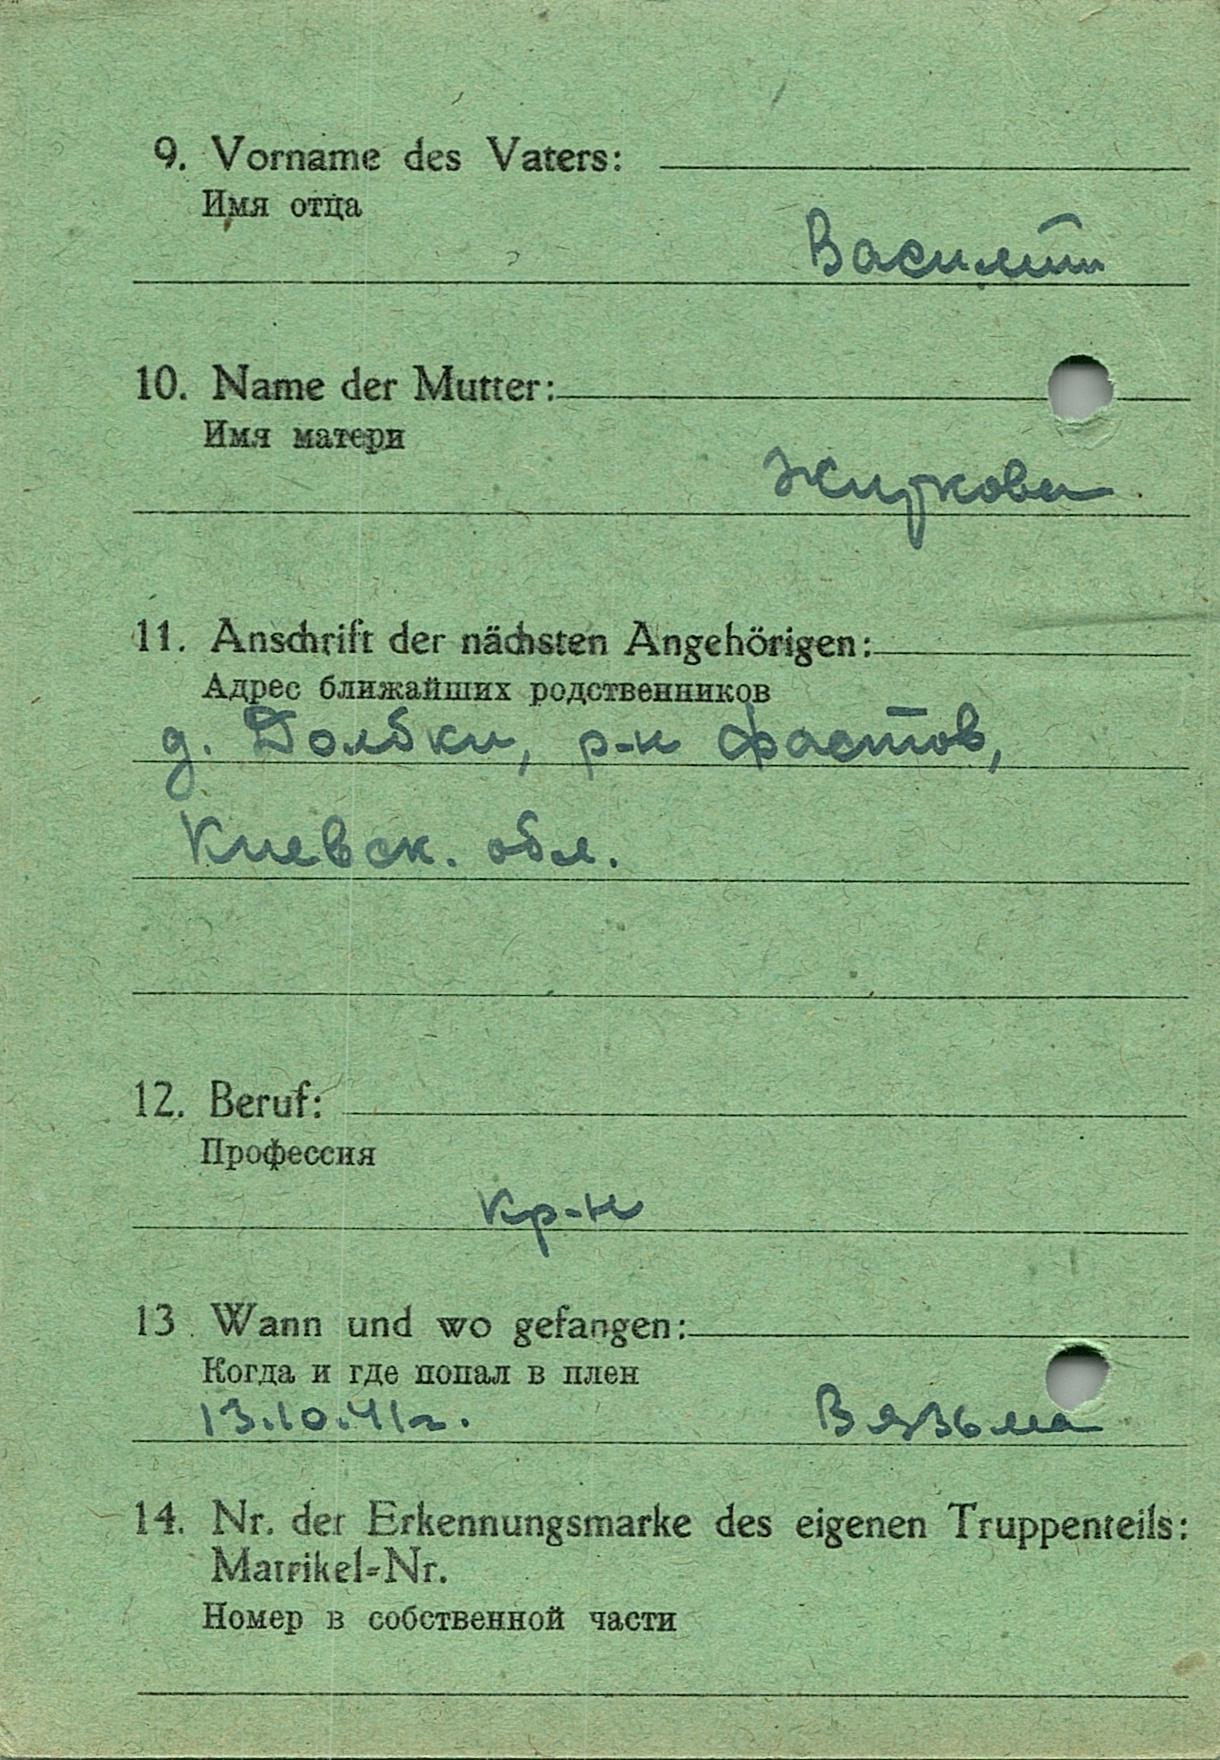 9. Vorname des Vaters:
Имя отца
Василий
10. Name der Mutter:
Имя матери
Жиркова
11. Anschrift der nächsten Angehörigen:
Адрес ближайших родственников
д. Долбки, р-н Фастов,
Киевск. обл.
12. Beruf:
Профессия
кр-н
13. Wann und wo gefangen:
Когда и где попал в плен
13.10.41г. Вязьма
14. Nr. der Erkennungsmarke des eigenen Truppenteils:
Matrikel-Nr.
Номер в собственной части